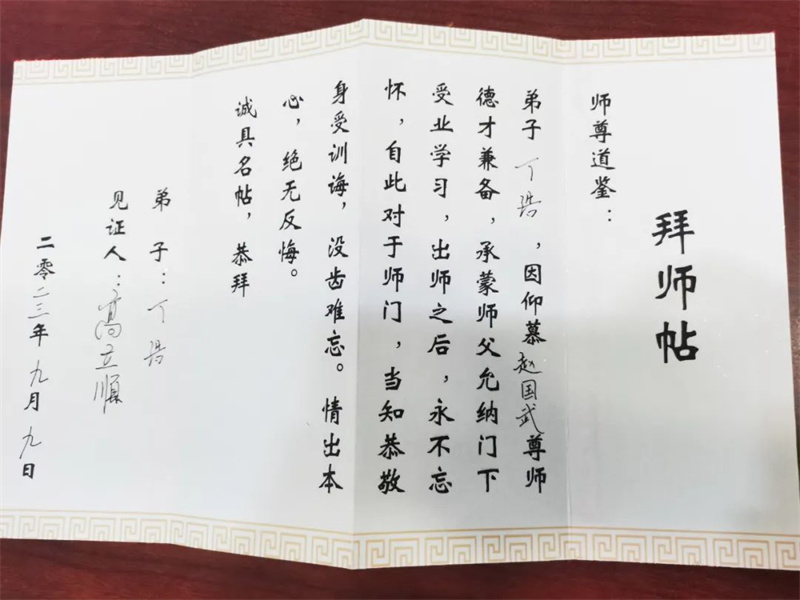 拜师帖
师尊道鉴：
弟子丁浩，因仰慕赵国武尊师
德才兼备，承蒙师父允纳门下
受业学习，出师之后，永不忘
怀，自此对于师门，当知恭敬
身受训诲，没齿难忘。情出本
心，绝无反悔。
诚具名帖，恭拜
弟子：丁浩
见证人：高立顺
二零二三年九月九日